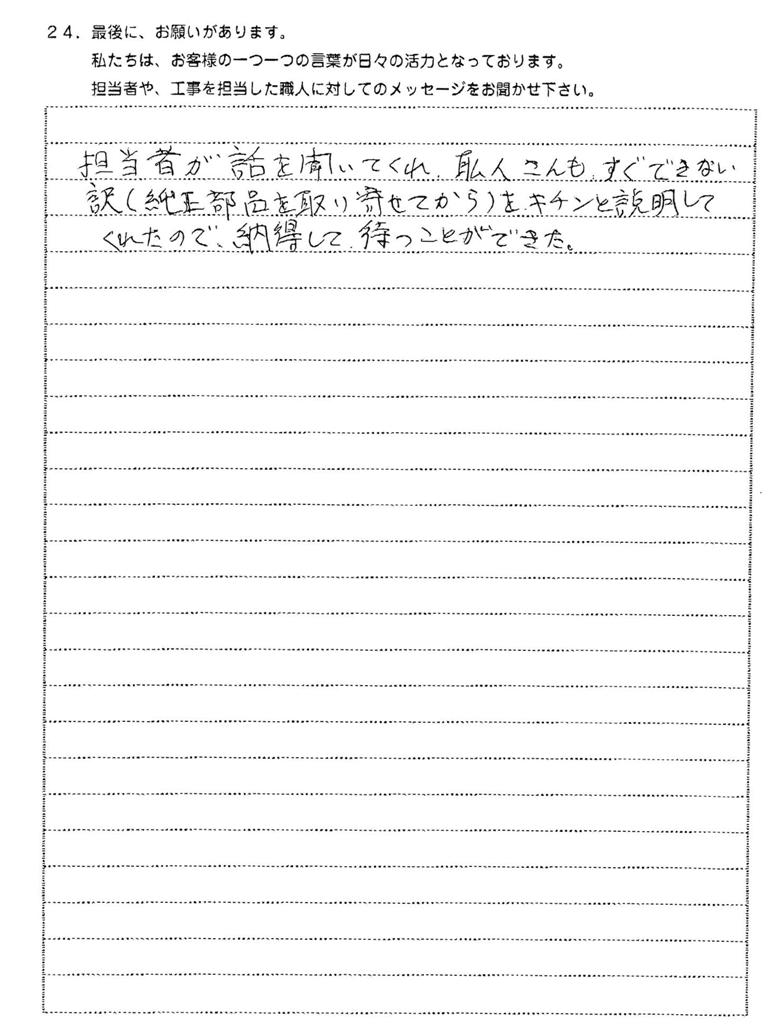 24．最後に、お願いがあります。
私たちは、お客様の一つ一つの言葉が日々の活力となっております。
担当者や、工事を担当した職人に対してのメッセージをお聞かせ下さい。
担当者が話を聞いてくれ、職人さんも、すぐできない
訳(純正部品を取り寄せてから)を、キチンと説明して
くれたので、納得して、待つことができた。